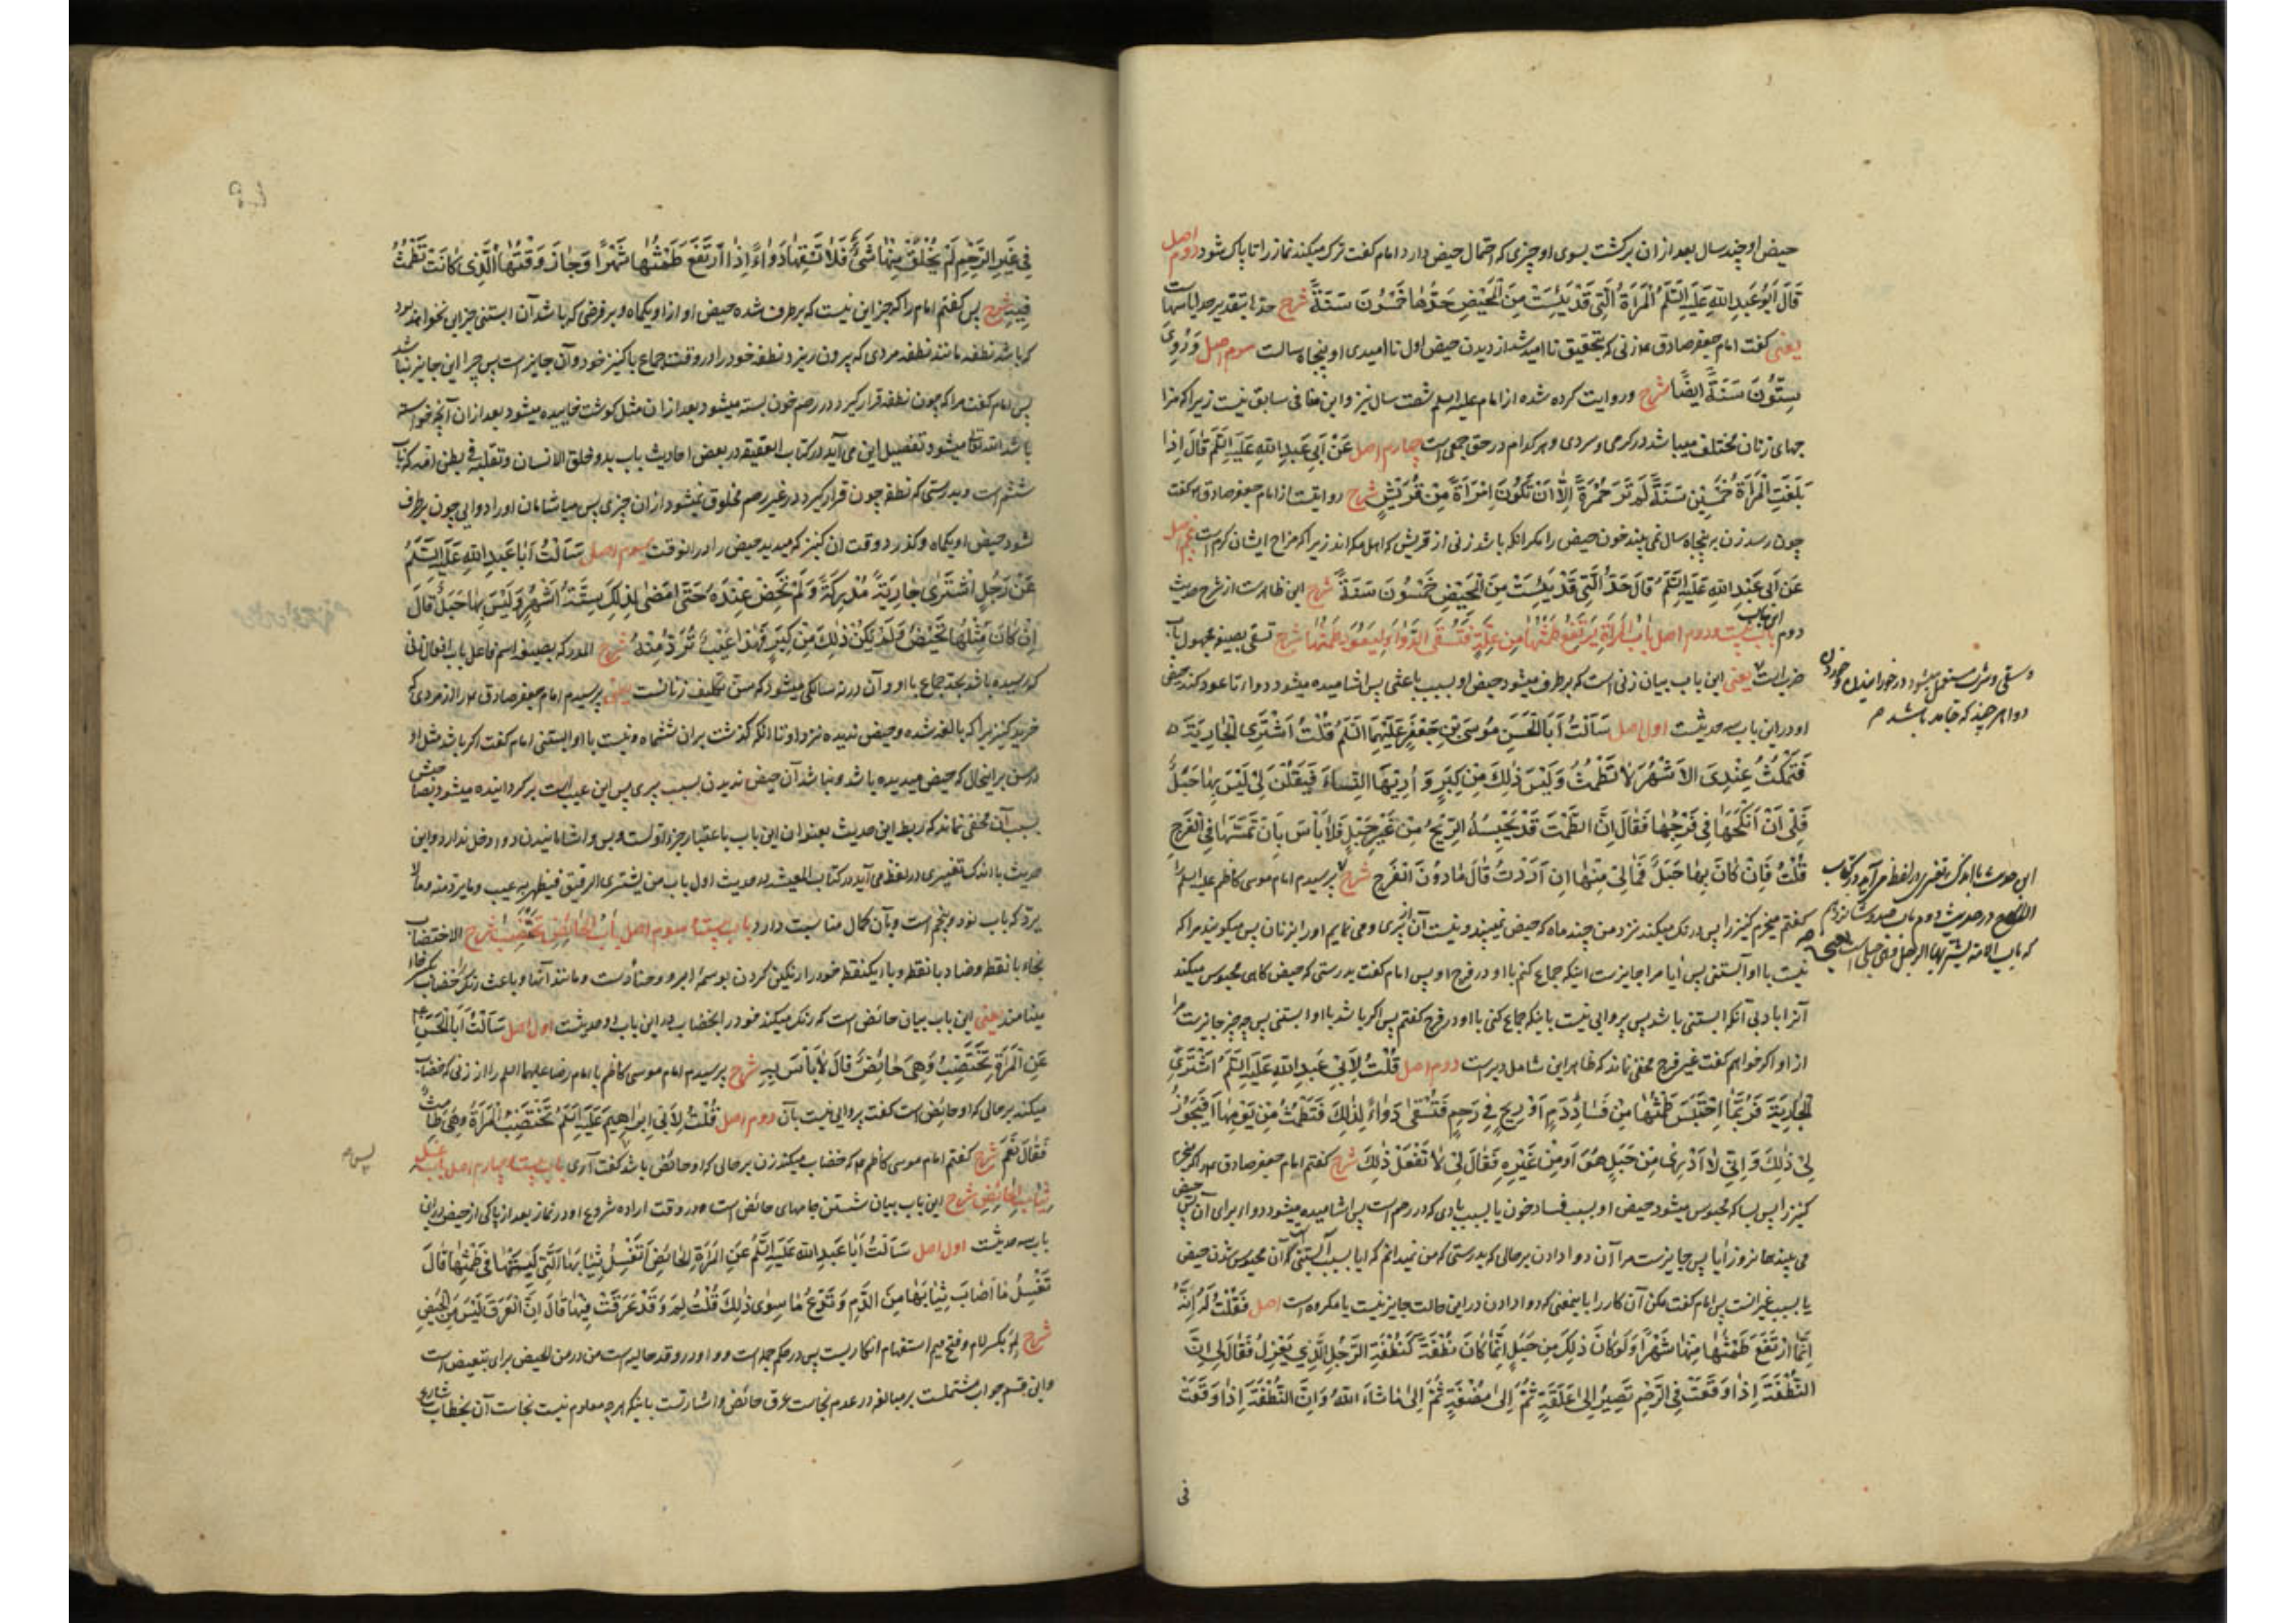 حیض او چند سال بعد از ان برکشت بسوی او چیزی که احتمال حیض دارد امام کفت ترک میکند نماز را تا پاک شود دوم اصل
قَالَ اَبُو عَبدِ اللهِ عَلَیهِ السَّلَمُ اَلمَرأةُ الَّتِی قَد یَئِسَت مِنَ الحَیضِ حَدُّهَا خَمسُونَ سَنَةً شرح
یعنی کفت امام جعفر صادق ع زنی که بتحقیق ناامید شد از دیدن حیض اول ناامیدی او پنجاه سالست سوم اصل وَرُوِیَ
سِتُّونَ سَنَةً اَیضًا شرح وروایت کرده شده از امام علیه السلم شصت سال نیز واین منافی سابق نیست زیرا که مزا
جهای زنان مختلف میباشد در کرمی وسردی وهر کدام در حق جمعی است چهارم اصل عَن اَبِی عَبدِ اللهِ عَلَیهِ السَّلَمُ قَالَ اِذَا
بَلَغَتِ المَرأةُ خَمسِینَ سَنَةً لَم تَرَ حُمرَةً اِلَّا اَن تَکُونَ اِمرَأةً مِن قُرَیشٍ شرح روایتست از امام جعفر صادق ع کفت
چون رسد زن به پنجاه سال نمی بیند خون حیض را مکر انکه باشد زنی از قریش که اهل مکه اند زیرا که مزاج ایشان کرم است پنجم اصل
عَن اَبِی عَبدِ اللهِ عَلَیهِ السَّلَمُ قَالَ حَدُّ الَّتِی قَد یَئِسَت مِنَ الحَیضِ خَمسُونَ سَنَةً شرح این ظاهرست از شرح حدیث
دوم باب بیست ودوم اصل بَابُ المَرأةِ یَرتَفِعُ طَمثُهَا مِن عِلَّةٍ فَتُسقَی الدَّوَاءَ لِیَعُودَ طَمثُهَا شرح تسقی بصیغه مجهول باب
ضرب است یعنی این باب بیان زنی است که برطرف میشود حیض او بسبب باعثی پس اشامیده میشود دواء تا عود کند حیض
او در این باب سه حدیثست اول اصل سَألتُ اَبَا الحَسَنِ مُوسَی بنِ جَعفَرٍ عَلَیهِمَا السَّلَمُ قُلتُ اَشتَرِی الجَارِیَةَ
فَتَمکُثُ عِندِیَ الاَشهُرَ لَا تَطمُثُ وَلَیسَ ذٰلِکَ مِن کِبَرٍ وَ اُرِیهَا النِّسَاءَ فَیَقُلنَ لِی لَیسَ بِهَا حَبَلٌ
فَلِی اَن اَنکِحَهَا فِی فَرجِهَا فَقَالَ اِنَّ الطَّمثَ قَد یَحبِسُهُ الرِّیحُ مِن غَیرِ حَبَلٍ فَلَا بَأسَ بِاَن تَمَسَّهَا فِی الفَرجِ
قُلتُ فَاِن کَانَ بِهَا حَبَلٌ فَمَا لِی مِنهَا اِن اَرَدتُ قَالَ مَا دُونَ الفَرجِ شرح پرسیدم امام موسی کاظم علیه السلم را
کفتم میخرم کنیز را پس درنک میکند نزد من چند ماه که حیض نمیبیند ونیست آن از پیری ومی نمایم او را بزنان پس میکویند مرا که
نیست با او آبستنی پس آیا مرا جایزست اینکه جماع کنم با او در فرج او پس امام کفت بدرستی که حیض کاهی محبوس میکند
آنرا بادبی آنکه ابستنی باشد پس پروایی نیست باینکه جماع کنی با او در فرج کفتم پس اکر باشد با او ابستنی پس چه چیز جایزست مرا
از او اکر خواهم کفت غیر فرج مخفی نماند که ظاهر این شامل دبرست دوم اصل قُلتُ لِاَبِی عَبدِ اللهِ عَلَیهِ السَّلَمُ اَشتَرِی
الجَارِیَةَ فَرُبَّمَا احتَبَسَ طَمثُهَا مِن فَسَادِ دَمٍ اَو رِیحٍ فِی رَحِمٍ فَتُسقَی دَوَاءً لِذٰلِکَ فَتَطمُثُ مِن یَومِهَا اَفَیَجُوزُ
لِی ذٰلِکَ وَ اِنِّی لَا اَدرِی مِن حَبَلٍ هُوَ اَو مِن غَیرِهِ فَقَالَ لِی لَا تَفعَل ذٰلِکَ شرح کفتم امام جعفر صادق ع را که میخرم
کنیز را پس بسا که محبوس میشود حیض او بسبب فساد خون یا بسبب بادی که در رحم است پس اشامیده میشود دواء برای آن پس حیض
می بیند همانروز آیا پس جایزست مرا آن دوا دادن برحالی که بدرستی که من نمیدانم که ایا بسبب آبستنی است که آن محبوس شدن حیض
یا بسبب غیر انست پس امام کفت مکن آن کار را باینمعنی که دوا دادن در این حالت جایز نیست یا مکروه است اصل فَقُلتُ لَهُ اِنَّهُ
اِنَّمَا ارتَفَعَ طَمثُهَا مِنهَا شَهرًا وَلَو کَانَ ذٰلِکَ مِن حَبَلٍ اِنَّمَا کَانَ نُطفَةً کَنُطفَةِ الرَّجُلِ الَّذِی یَعزِلُ فَقَالَ لِی اِنَّ
النُّطفَةَ اِذَا وَقَعَت فِی الرَّحِمِ تَصِیرُ اِلٰی عَلَقَةٍ ثُمَّ اِلٰی مُضغَةٍ ثُمَّ اِلٰی مَا شَاءَ اللهُ وَاِنَّ النُّطفَةَ اِذَا وَقَعَت
فی
دوا هر چیز که جامد باشد
این حدیث با اندک تغییری در لفظ می آید در کتاب
فِی غَیرِ الرَّحِمِ لَم یُخلَق مِنهَا شَئٌ فَلَا تَسقِهَا دَوَاءً اِذَا ارتَفَعَ طَمثُهَا شَهرًا وَجَازَ وَقتُهَا الَّذِی کَانَت تَطمُثُ
فِیهِ شرح پس کفتم امام را که جز این نیست که برطرف شده حیض او از او یکماه وبر فرضی که باشد آن ابستنی جز این نخواهد بود
که باشد نطفه مانند نطفه مردی که بیرون ریزد نطفه خود را در وقت جماع با کنیز خود وآن جایز است پس چرا این جایز نباشد
پس امام کفت مرا که چون نطفه قرار کیرد در رحم خون بسته میشود بعد از ان مثل کوشت خاییده میشود بعد از ان آنچه خواسته
باشد الله تعالی میشود تفصیل این می آید در کتاب العقیقه در بعض احادیث باب بدو خلق الانسان وتقلبه فی بطن امه که باب
ششم است وبدرستی که نطفه چون قرار کیرد در غیر رحم مخلوق نمیشود از ان چیزی پس میاشامان او را دوایی چون برطرف
شود حیض او یکماه وکذرد وقت ان کنیز که میدید حیض را در انوقت سوم اصل سَألتُ اَبَا عَبدِ اللهِ عَلَیهِ السَّلَمُ
عَن رَجُلٍ اشتَرٰی جَارِیَةً مُدرِکَةً وَلَم تَحِض عِندَهُ حَتّٰی مَضٰی لِذٰلِکَ سِتَّةُ اَشهُرٍ وَلَیسَ بِهَا حَبَلٌ قَالَ
اِن کَانَ مِثلُهَا تَحِیضُ وَلَم یَکُن ذٰلِکَ مِن کِبَرٍ فَهٰذَا عَیبٌ تُرَدُّ مِنهُ شرح المدرکه بصیغه اسم فاعل باب افعال زنی
که رسیده باشد بحد جماع با او وآن در نه سالکی میشود که سن تکلیف زنانست یعنی پرسیدم امام جعفر صادق ع را از مردی که
خرید کنیز را که بالغه شده وحیض ندیده نزد او تا انکه کذشت بران ششماه ونیست با او ابستنی امام کفت اکر باشد مثل او
در سن برین حال که حیض میدیده باشد ونباشد آن حیض ندیدن بسبب پیری پس این عیب است برکردانیده میشود بصاحبش
بسبب آن مخفی نماند که ربط این حدیث بعنوان این باب باعتبار جزء اولست وبس واشامانیدن دواء دخل ندارد واین
حدیث با اندک تغییری در لفظ می آید در کتاب المعیشه در حدیث اول باب من یشتری الرقیق فیظهر به عیب وما یرد منه وما لا
یرد که باب نود وپنجم است وبآن کمال مناسبت دارد باب بیست وسوم اصل بَابُ الحَائِضِ تَختَضِبُ شرح الاختضاب
بخاء با نقطه وضاد با نقطه وباء یکنقطه خود را رنکین کردن بوسمه ابرو وحنا دست ومانند آنها وباعث رنک را خضاب
مینامند یعنی این باب بیان حائض است که رنک میکند خود را بخضاب در این باب دو حدیثست اول اصل سَألتُ اَبَا الحَسَنِ
عَنِ المَرأةِ تَختَضِبُ وَهِیَ حَائِضٌ قَالَ لَا بَأسَ بِهِ شرح پرسیدم امام موسی کاظم یا امام رضا علیهما السلم را از زنی که خضاب
میکند برحالی که او حائض است کفت پروایی نیست بآن دوم اصل قُلتُ لِاَبِی اِبرٰهِیمَ عَلَیهِ السَّلَمُ تَختَضِبُ المَرأةُ وَهِیَ طَامِثٌ
فَقَالَ نَعَم شرح کفتم امام موسی کاظم ع را که خضاب میکند زن برحالی که او حائض باشد کفت آری باب بیست وچهارم اصل بَابُ غَسلِ
ثِیَابِ الحَائِضِ شرح این باب بیان شستن جامهای حائض است در وقت اراده شروع او در نماز بعد از پاکی از حیض در این
باب سه حدیثست اول اصل سَألتُ اَبَا عَبدِ اللهِ عَلَیهِ السَّلَمُ عَنِ المَرأةِ الحَائِضِ اَتَغسِلُ ثِیَابَهَا الَّتِی لَبِسَتهَا فِی طَمثِهَا قَالَ
تَغسِلُ مَا اَصَابَ ثِیَابَهَا مِنَ الدَّمِ وَتَدَعُ مَا سِوٰی ذٰلِکَ قُلتُ لِمَ وَقَد عَرَقَت فِیهَا قَالَ اِنَّ العَرَقَ لَیسَ مِنَ الحَیضِ
شرح لِمَ بکسر لام وفتح میم استفهام انکاریست پس در حکم جمله است وواو در وقد حالیه است من در من الحیض برای تبعیض است
واین قسم جواب مشتملست بر مبالغه در عدم نجاست عرق حائض واشارتست باینکه هر چه معلوم نیست نجاست آن بخطاب شارع